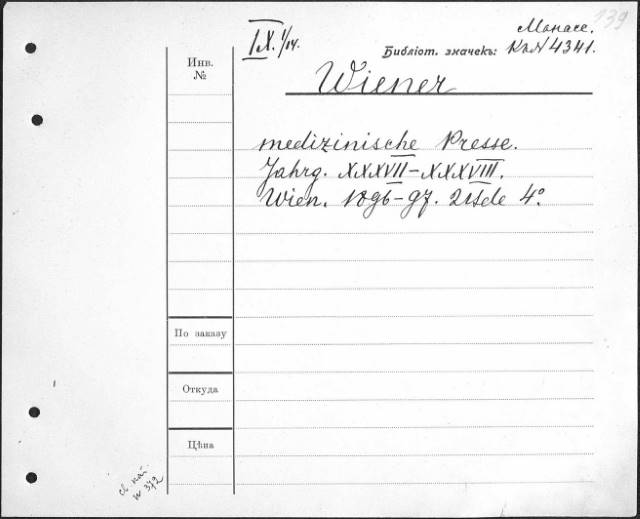 139
IX. 1/14.
Монасе.
Библіот. значекъ: КаN 4341.
Инв.
№
Wiener
medizinische Presse.
Jahrg. XXXVII-XXXVIII.
Wien. 1896-97. 2 Bde 4°.
По заказу
Откуда
Цѣна